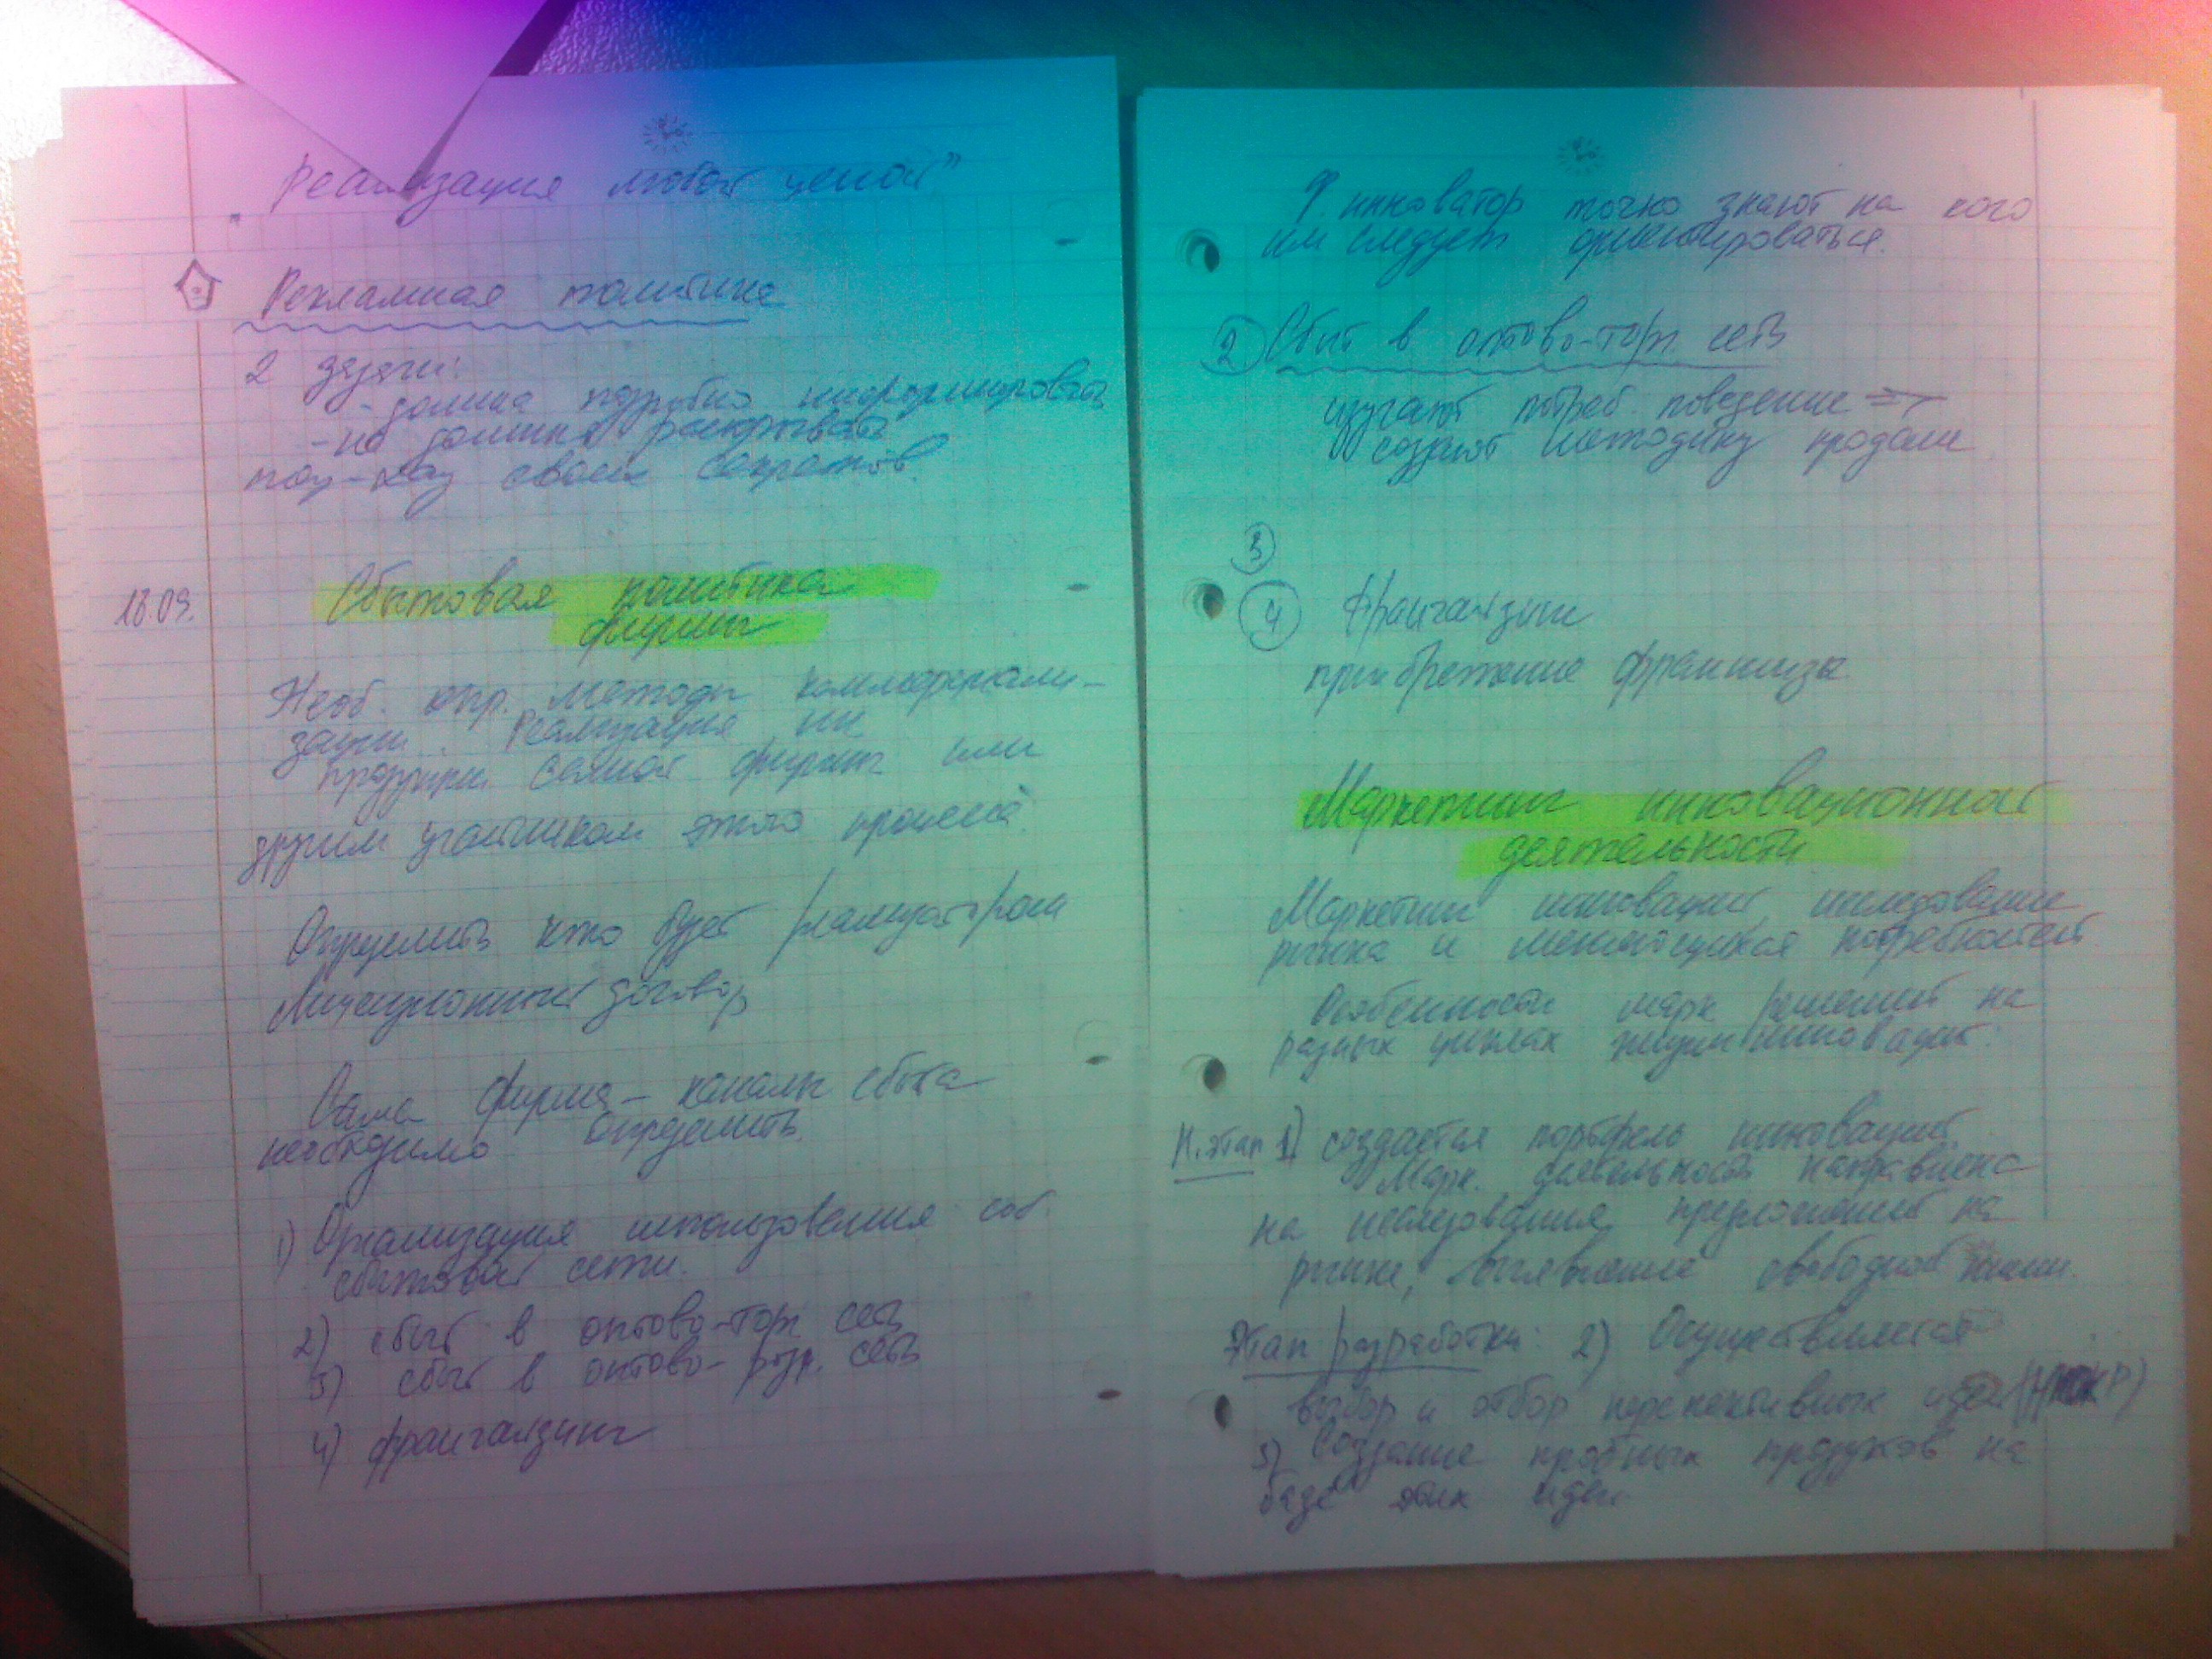 реализация любой ценой"
Рекламная политика
2 задачи:
- должна подробно информировать
- не должна раскрывать
ноу-хау своих секретов.
18.09.
Сбытовая политика
фирмы
Необ. опр. методы коммерциали-
зации. Реализация ин.
продукции самой фирмы или
другим участником этого процесса.
Определить кто будет реализатором
Лицензионный договор
Сама фирма – каналы сбыта
необходимо определить.
1) Организация использования соб.
сбытовой сети.
2) сбыт в оптово-торг. сеть
3) сбыт в оптово-розн. сеть
4) франчайзинг
Ф. инноватор точно знают на кого
им следует ориентироваться.
2 Сбыт в оптово-торг. сеть
изучают потреб. поведение =>
создают методику продажи
3
4 Франчайзинг
приобретение франшизы
Маркетинг инновационной
деятельности
Маркетинг инноваций, исследование
рынка и меняющихся потребностей
Особенности марк решений на
разных циклах жизни инноваций:
Н. этап 1) создается портфель инноваций.
Марк. деятельность направлена
на исследования предложений на
рынке, выявление свободной ниши.
Этап разработки: 2) Осуществляется
выбор и отбор перспективных идей (НИОКР)
3) Создание пробных продуктов на
базе этих идей.